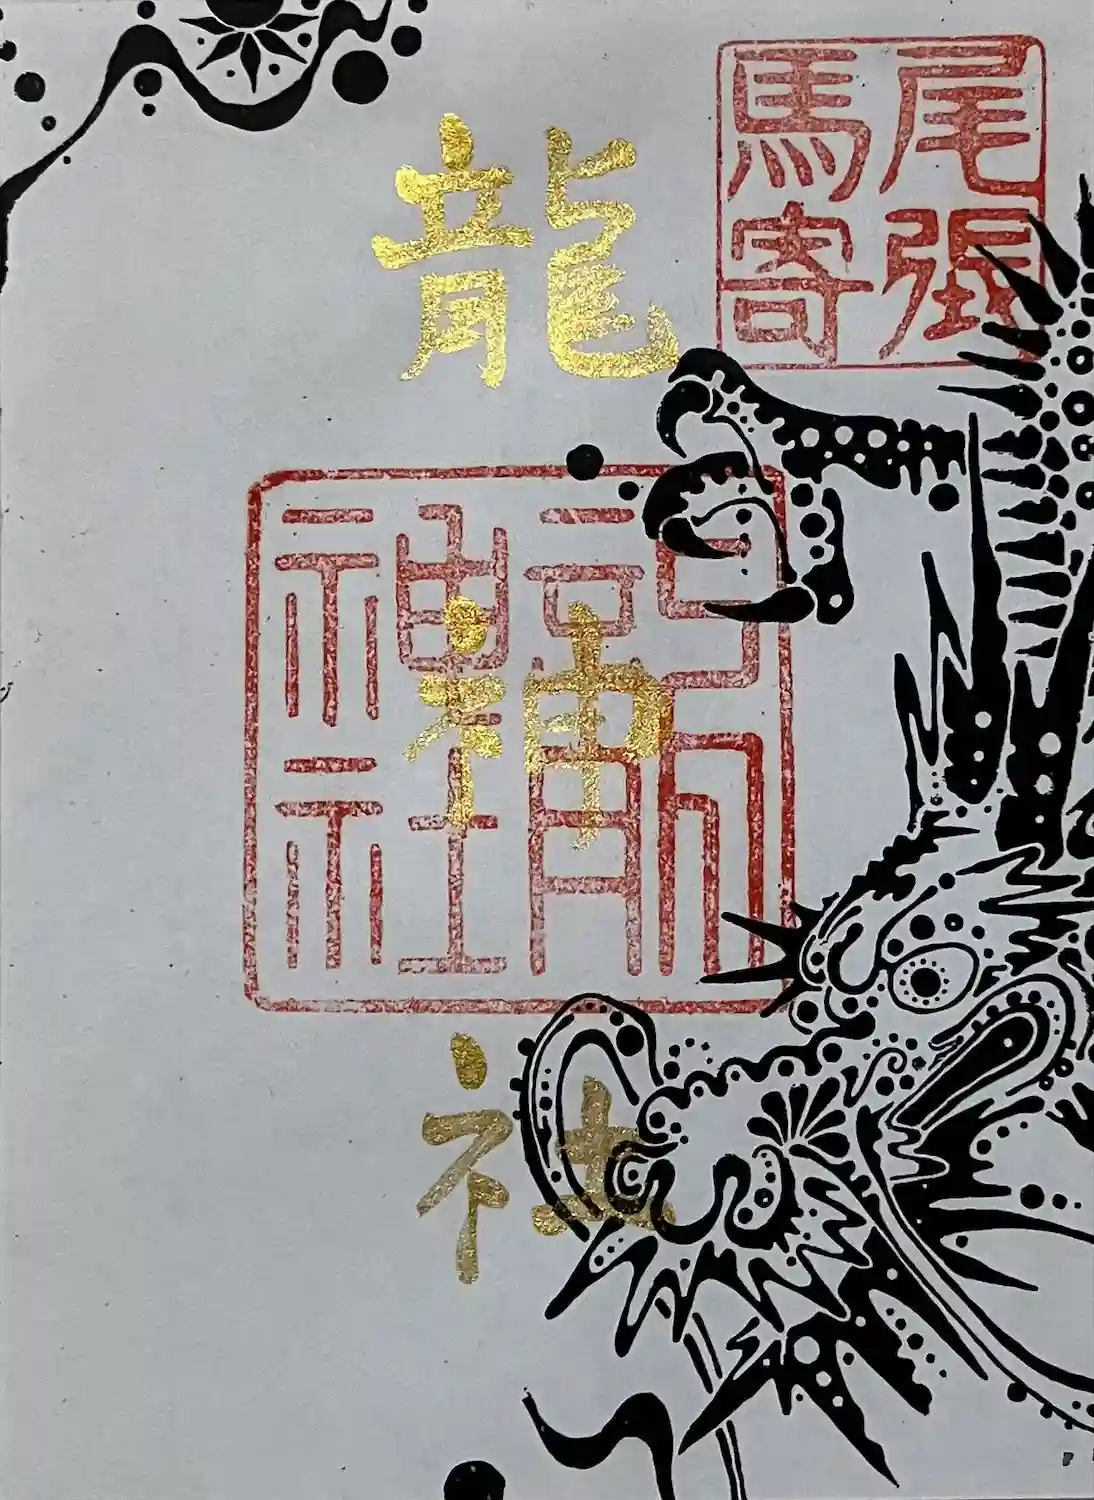 尾張
馬寄
龍神社
龍
神社